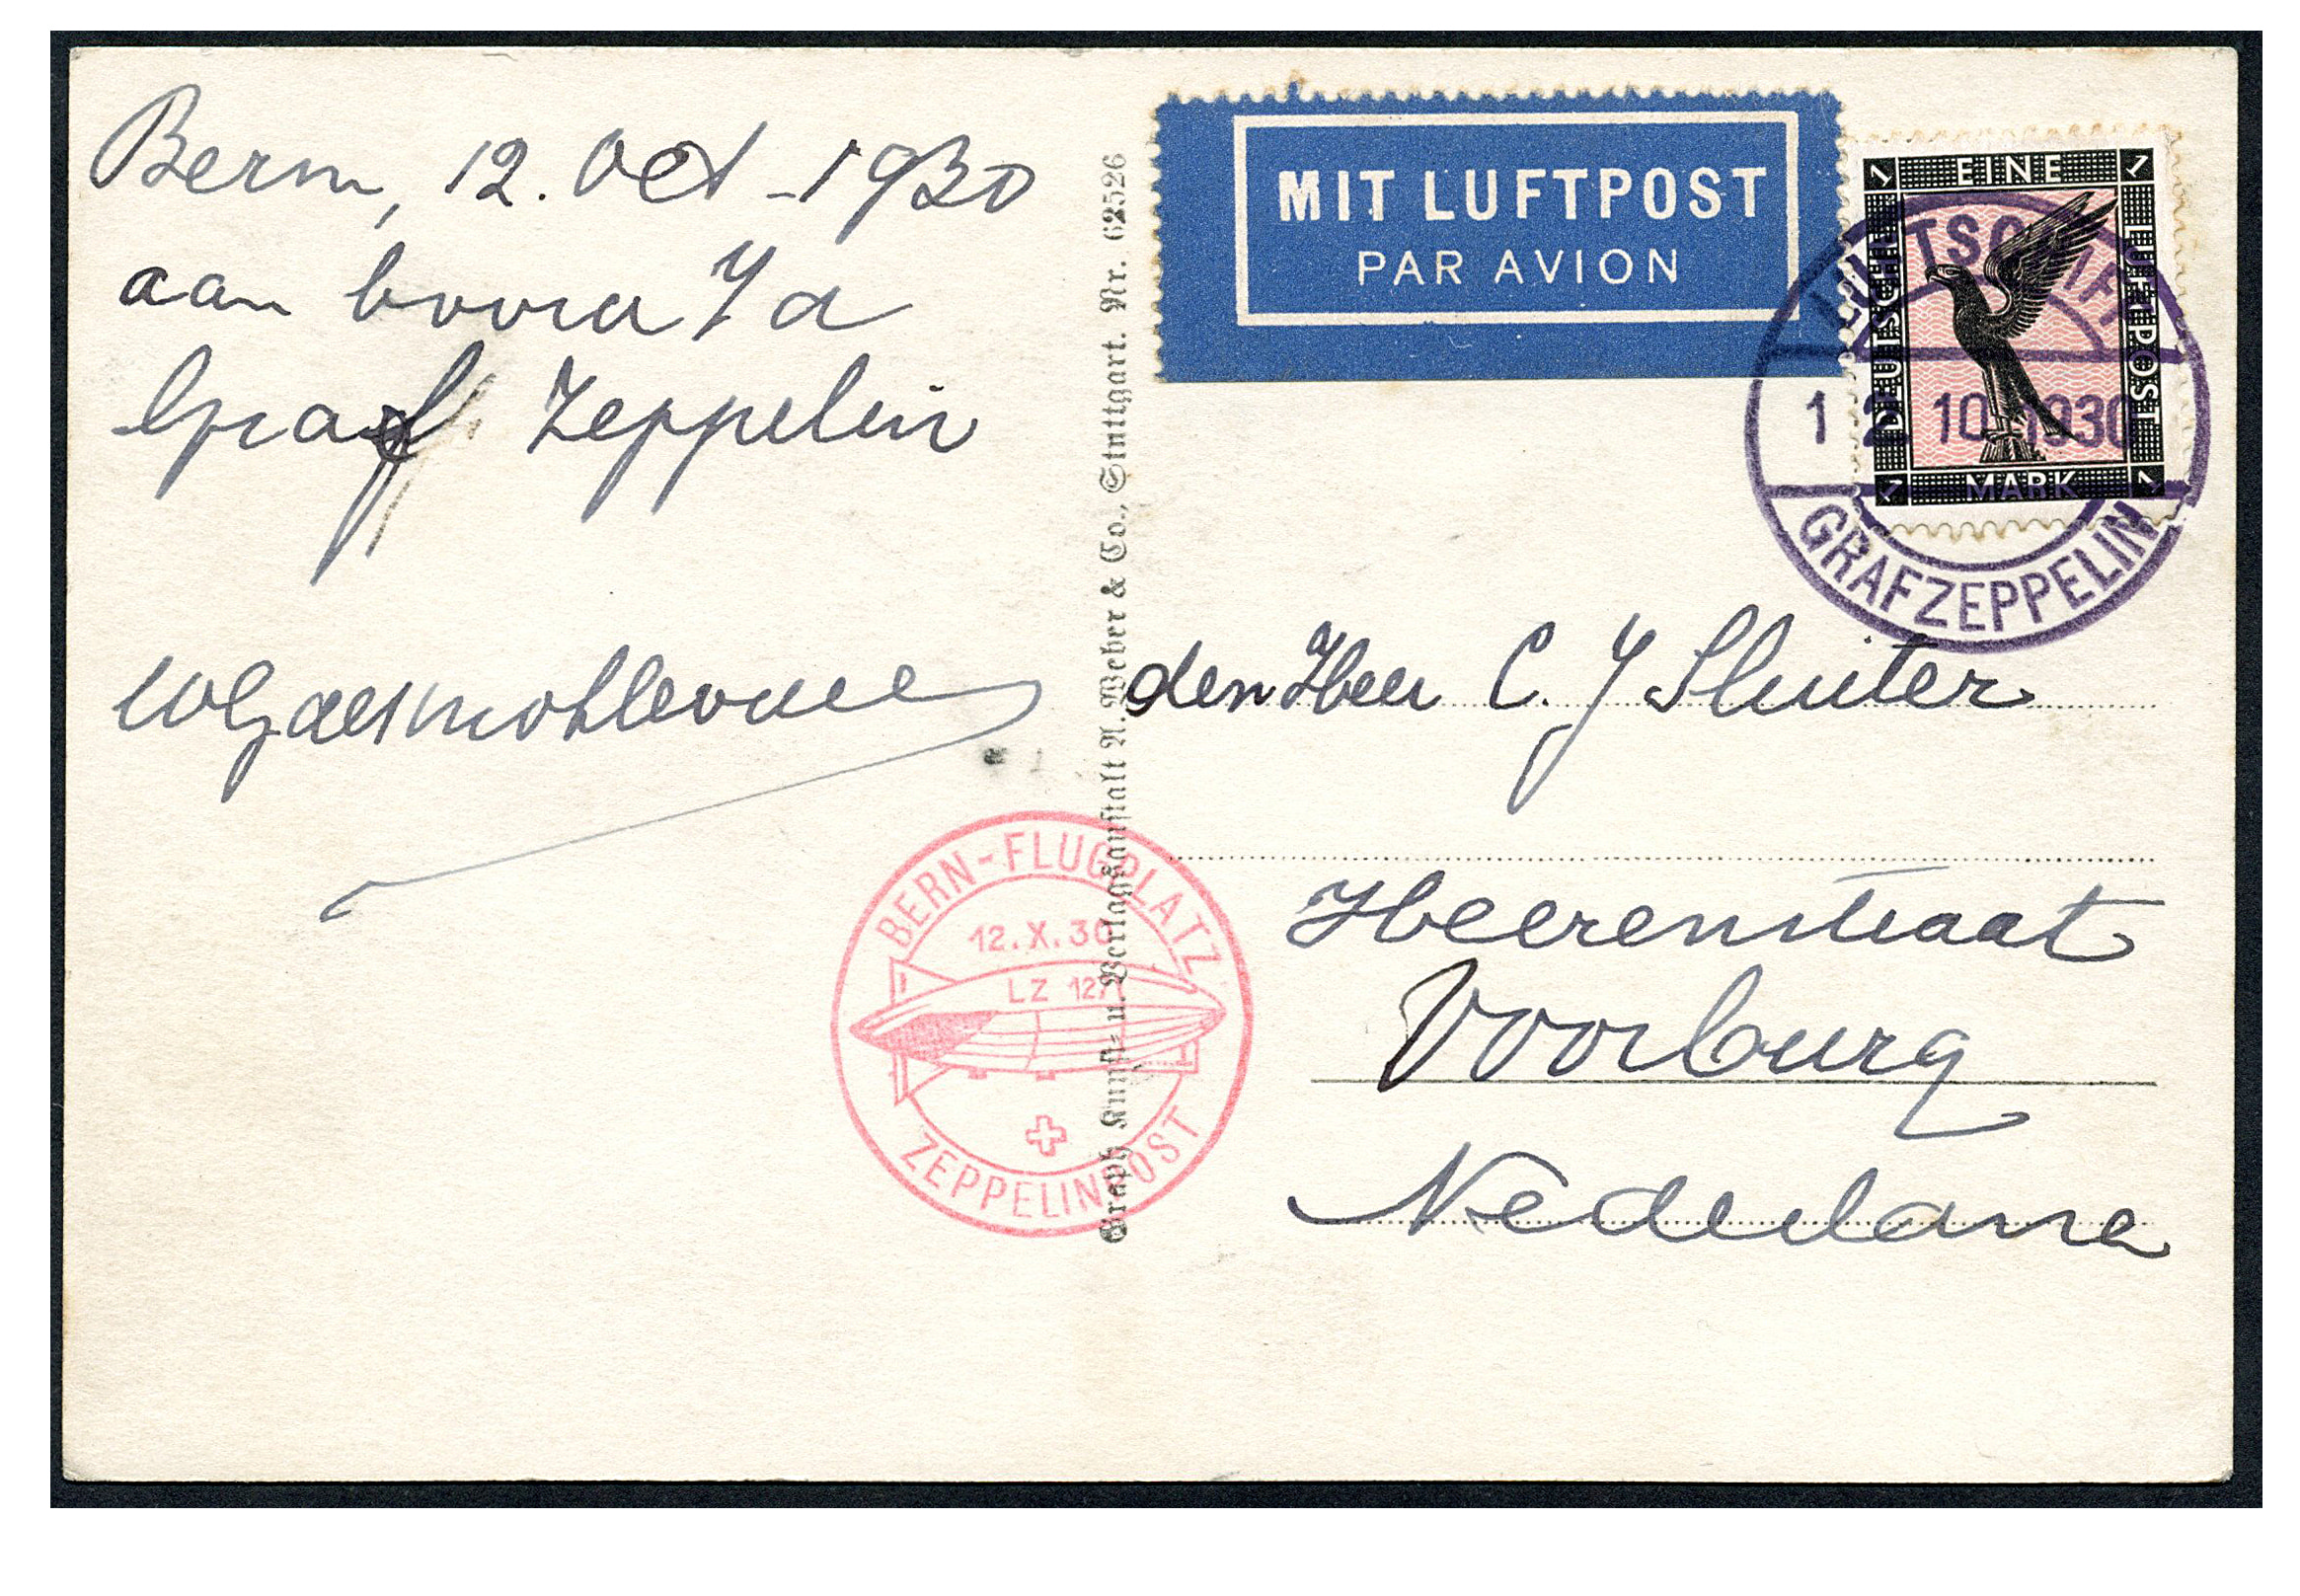 Bern, 12. Oct - 1930
aan boord
Graf Zeppelin
MIT LUFTPOST
PAR AVION
1 EINE 1
DEUTSCHE
LUFTPOST
1 MARK 1
LUFTSCHIFF
12 10 1930
GRAF ZEPPELIN
den Heer C. J Sluiter
Heerenstraat
Voorburg
Nederland
BERN-FLUGPLATZ
12.X.30
LZ 127
ZEPPELINPOST
Graph. Kunst- u. Verlagsanstalt A. Weber & Co., Stuttgart. Nr. 62526